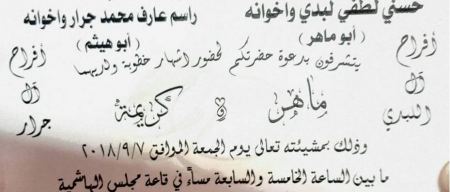 حسني لطفي لبدي واخوانه
(أبو ماهر)
راسم عارف محمد جرار واخوانه
(أبو هيثم)
أفراح
آل
اللبدي
أفراح
آل
جرار
يتشرفون بدعوة حضرتكم لحضور اشهار خطوبة ولديهما
ماهر & كريمة
وذلك بمشيئته تعالى يوم الجمعة الموافق ٢٠١٨/٩/٧
ما بين الساعة الخامسة والسابعة مساءً في قاعة مجلس الهاشمية